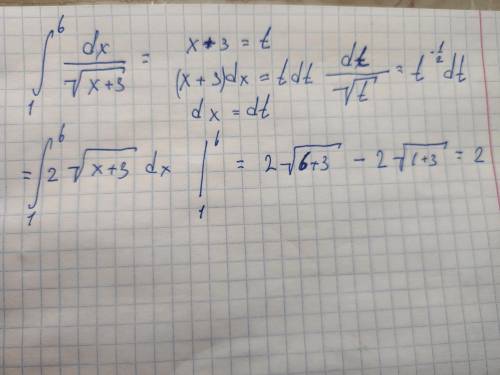 ∫₁⁶ dx/√(x+3) = x+3 = t
(x+3)dx = t dt dt/√t = t^(-1/2) dt
dx = dt
= ∫₁⁶ 2√(x+3) dx |₁⁶ = 2√(6+3) − 2√(1+3) = 2